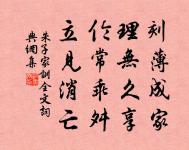 刻薄成家
理無久享
倫常乖舛
立見消亡
朱子家訓全文詞
典網集